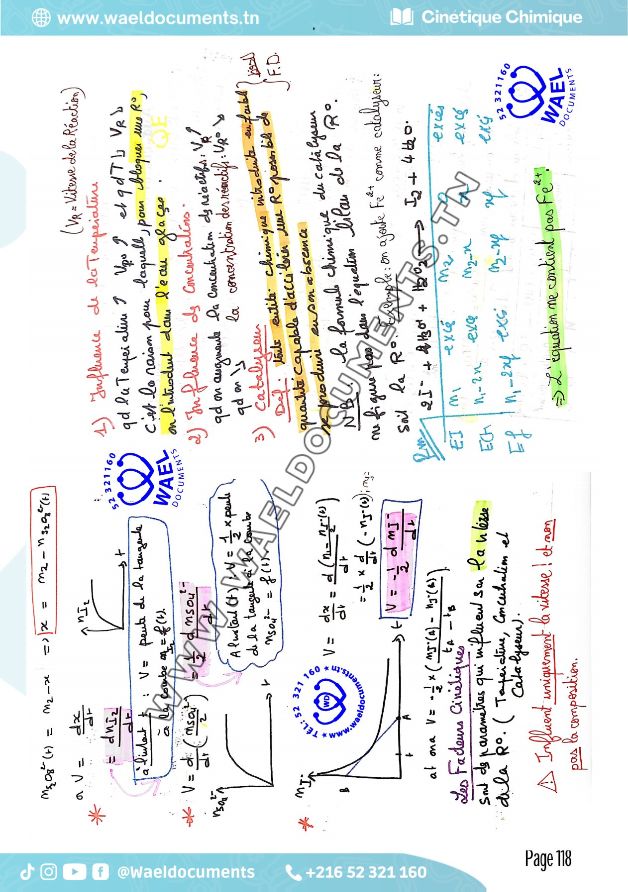 www.waeldocuments.tn
Cinétique Chimique
nS2O8²⁻(t) = n2 - x ⇒ x = n2 - nS2O8²⁻(t)
V = dx/dt
* = dnI2/dt
nI2
t
à l'instant t : V = pente de la tangente
à la courbe nI2 = f(t).
* V = d/dt (nSO4²⁻/2) = 1/2 dnSO4²⁻/dt
nSO4²⁻
t
A l'instant (t) ; V = 1/2 x pente
de la tangente à la courbe
nSO4²⁻ = f(t).
* nI⁻
B
A
t
t
V = dx/dt = d/dt (n1 - nI⁻(t)/2)
= 1/2 x d/dt (-nI⁻(t))
V = -1/2 dnI⁻/dt
V = -1/2 x (nI⁻(A) - nI⁻(B) / tA - tB)
Les Facteurs Cinétiques
Sont des paramètres qui influent sur la vitesse
de la R°. (Température, Concentration et
Catalyseur).
⚠ Influent uniquement la vitesse ! et non
pas la composition.
(VR = Vitesse de la Réaction)
1) Influence de la Température
qd la Température ↗ VR° ↗ et qd T ↘ VR ↘
c'est la raison pour laquelle, pour bloquer une R°,
on l'introduit dans l'eau glacée.
2) Influence des Concentrations.
qd on augmente la concentration des réactifs : VR ↗
qd on ↘ la concentration des réactifs : VR° ↘
3) Catalyseur
Def : toute entité chimique introduite en faible
quantité capable d'accélérer une R° possible de
se produire en son absence
F.D.
NB : la formule chimique du catalyseur
ne figure pas dans l'équation bilan de la R°.
Soit la R° Exemple : on ajoute Fe²⁺ comme catalyseur :
2I⁻ + 2H3O⁺ + H2O2 → I2 + 4H2O.
EI n1 excés n2 0 excés
n1-2x excés n2-x x excés
Ef n1-2xf excés n2-xf xf excés
⇒ L'équation ne contient pas Fe²⁺.
52 321 160
WAEL
DOCUMENTS
52 321 160
WAEL
DOCUMENTS
TEL: 52 321 160
www.waeldocuments.tn
WD
WWW.WAELDOCUMENTS.TN
Page 118
@Waeldocuments
+216 52 321 160